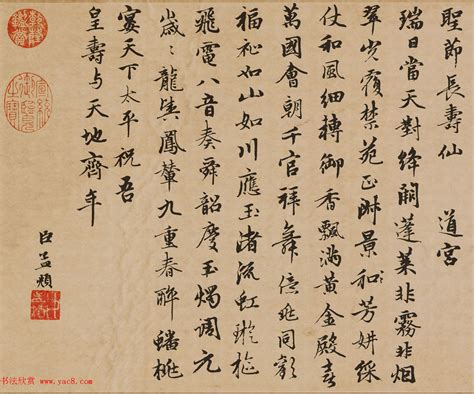 聖節長壽仙 道宮
瑞日當天對絳闕蓬萊非霧非烟
翠光覆禁苑正淑景和芳妍綵
仗和風細轉御香飄滿黃金殿喜
萬國會朝千官拜舞億兆同歡
福祉如山如川應玉渚流虹璇樞
飛電八音奏舜韶慶玉燭調元
歲〻龍輿鳳輦九重春醉蟠桃
宴天下太平祝吾
皇壽与天地齊年
臣孟頫
书法欣赏 www.yac8.com